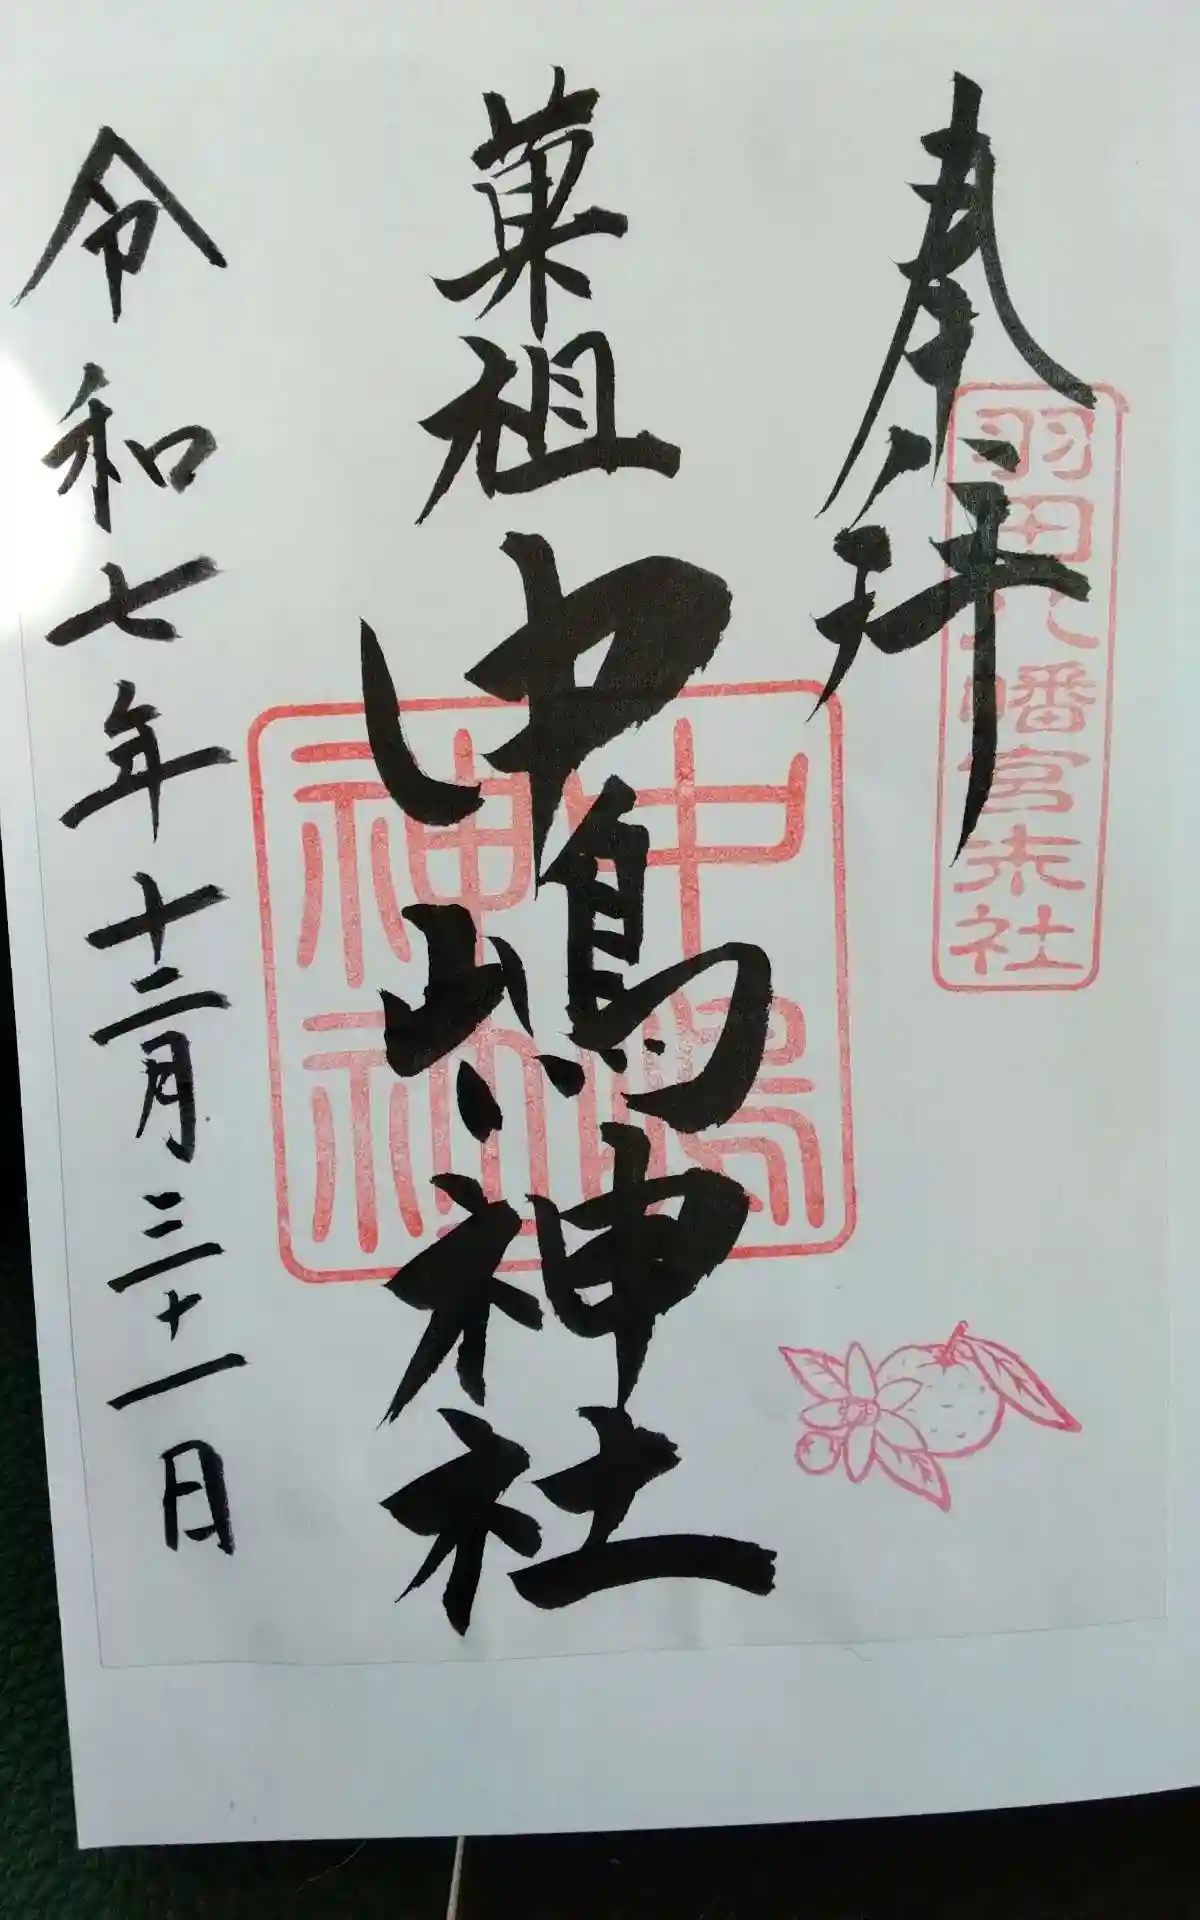 奉拝
羽田八幡宮末社
菓祖
中嶋神社
中嶋神社
令和七年十二月三十一日